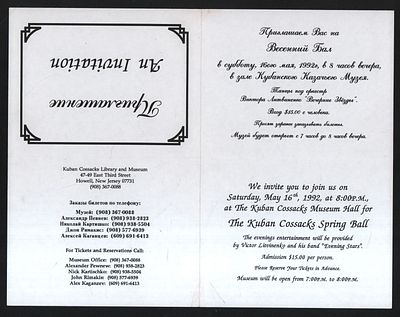 Приглашение
An Invitation
Kuban Cossacks Library and Museum
47-49 East Third Street
Howell, New Jersey 07731
(908) 367-0088
Заказы билетов по телефону:
Музей: (908) 367-0088
Александр Певнев: (908) 938-2823
Николай Картишко: (908) 938-5504
Джон Римакис: (908) 577-6939
Алексей Каганцев: (609) 691-6413
For Tickets and Reservations Call:
Museum Office: (908) 367-0088
Alexander Pewnew: (908) 938-2823
Nick Kartischko: (908) 938-5504
John Rimakis: (908) 577-6939
Alex Kaganzev: (609) 691-6413
Приглашаем Вас на
Весенний Бал
в субботу, 16ого мая, 1992г, в 8 часов вечера,
в зале Кубанского Казачьего Музея.
Танцы под оркестр
Виктора Литвиненко "Вечерние Звёзды".
Вход $15.00 с человека.
Просят заранее заказывать билеты.
Музей будет открыт с 7 часов до 8 часов вечера.
We invite you to join us on
Saturday, May 16th, 1992, at 8:00P.M.,
at The Kuban Cossacks Museum Hall for
The Kuban Cossacks Spring Ball
The evenings entertainment will be provided
by Victor Litvinenko and his band "Evening Stars".
Admission $15.00 per person.
Please Reserve Your Tickets in Advance.
Museum will be open from 7:00P.M. to 8:00P.M.